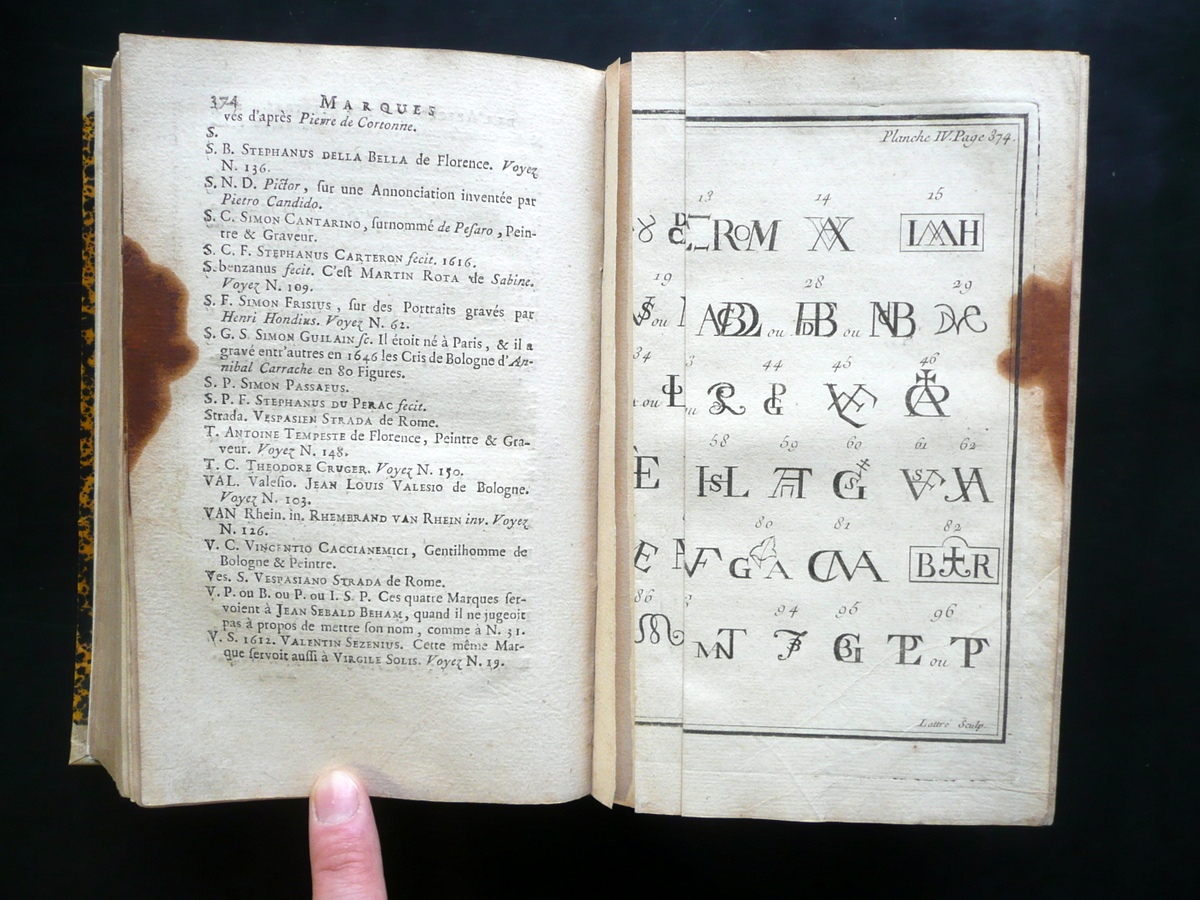 374 MARQUES
vés d'après Pietre de Cortonne.
S.
S. B. STEPHANUS DELLA BELLA de Florence. Voyez
N. 136.
S. N. D. Pictor, sur une Annonciation inventée par
Pietro Candido.
S. C. SIMON CANTARINO, surnommé de Pesaro, Pein-
tre & Graveur.
S. C. F. STEPHANUS CARTERON fecit. 1616.
S. benzanus fecit. C'est MARTIN ROTA de Sabine.
Voyez N. 109.
S. F. SIMON FRISIUS, sur des Portraits gravés par
Henri Hondius. Voyez N. 62.
S. G. S SIMON GUILAIN sc. Il étoit né à Paris, & il a
gravé entr'autres en 1646 les Cris de Bologne d'An-
nibal Carrache en 80 Figures.
S. P. SIMON PASSAEUS.
S. P. F. STEPHANUS DU PERAC fecit.
Strada. VESPASIEN STRADA de Rome.
T. ANTOINE TEMPESTE de Florence, Peintre & Gra-
veur. Voyez N. 148.
T. C. THEODORE CRUGER. Voyez N. 150.
VAL. Valesio. JEAN LOUIS VALESIO de Bologne.
Voyez N. 103.
VAN Rhein. in. RHEMBRAND VAN RHEIN inv. Voyez
N. 126.
V. C. VINCENTIO CACCIANEMICI, Gentilhomme de
Bologne & Peintre.
Ves. S. VESPASIANO STRADA de Rome.
V. P. ou B. ou P. ou I. S. P. Ces quatre Marques ser-
voient à JEAN SEBALD BEHAM, quand il ne jugeoit
pas à propos de mettre son nom, comme à N. 31.
V. S. 1612. VALENTIN SEZENIUS. Cette même Mar-
que servoit aussi à VIRGILE SOLIS. Voyez N. 19.
Planche IV. Page 374.
13 14 15
ROM IAAH
19 28 29
ou ou ou
34 44 45 46
ou
58 59 60 61 62
E ISL
80 81 82
E F GA BR
86 94 95 96
ou
Lattré Sculp.